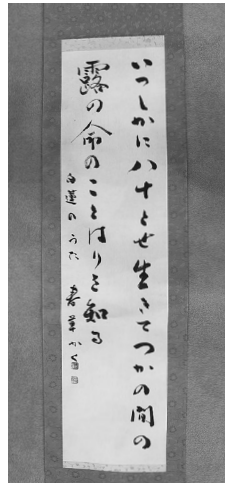 いつしかに八十とせ生きてつかの間の
露の命のことはりを知る
白蓮のうた 春草かく